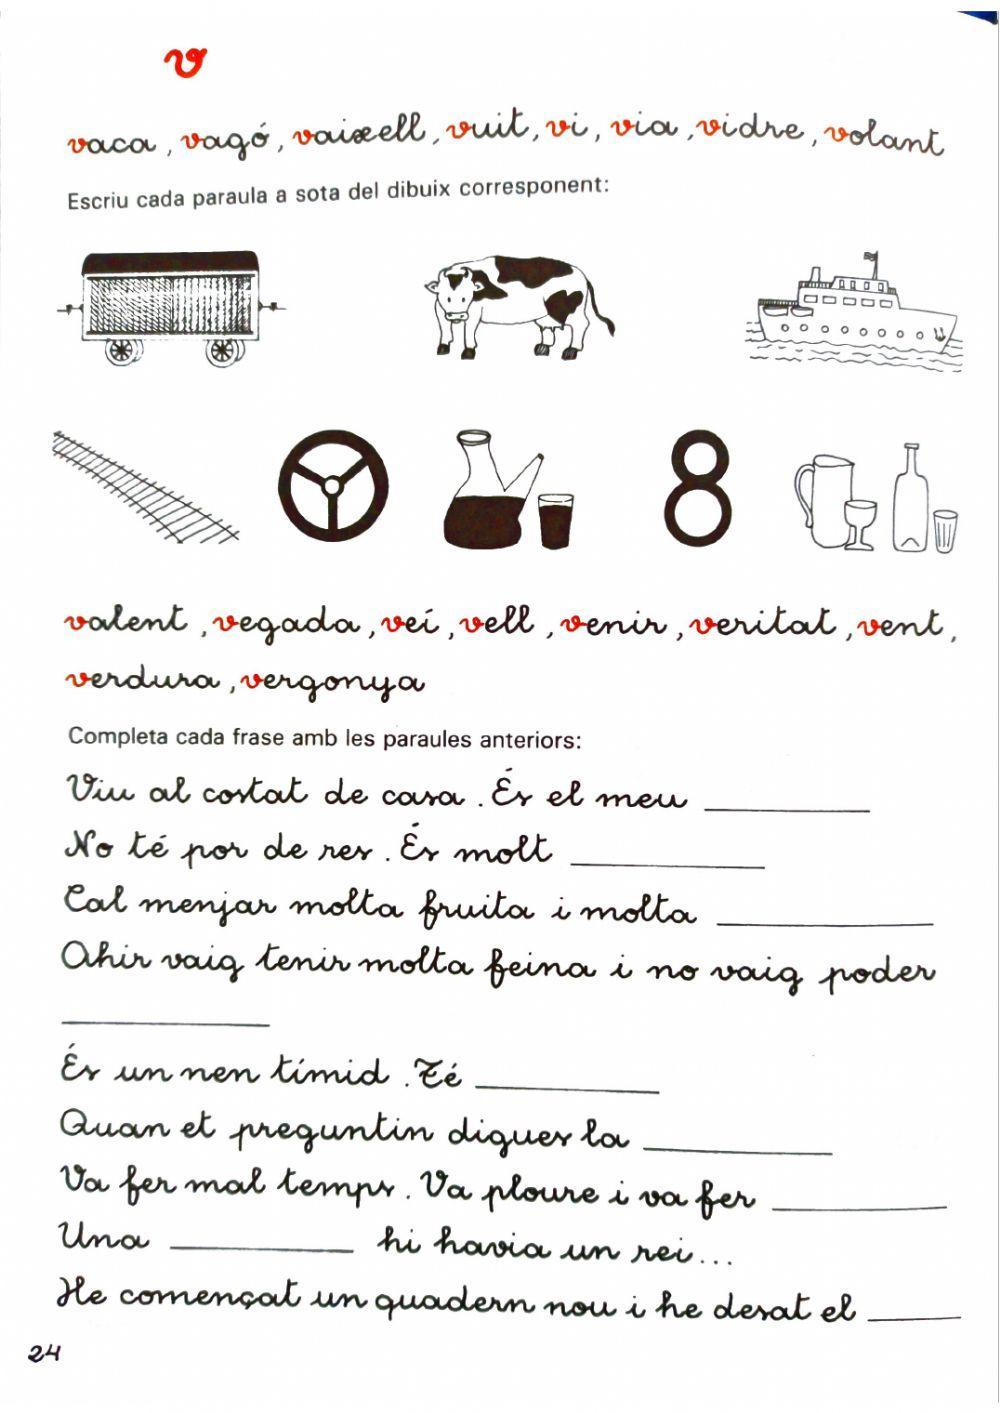 v
vaca, vagó, vaixell, vuit, vi, via, vidre, volant
Escriu cada paraula a sota del dibuix corresponent:
8
valent, vegada, veí, vell, venir, veritat, vent,
verdura, vergonya
Completa cada frase amb les paraules anteriors:
Viu al costat de casa. És el meu ____________
No té por de res. És molt ____________
Cal menjar molta fruita i molta ____________
Ahir vaig tenir molta feina i no vaig poder
____________
És un nen tímid. Té ____________
Quan et preguntin digues la ____________
Va fer mal temps. Va ploure i va fer ____________
Una ____________ hi havia un rei...
He començat un quadern nou i he desat el ______
24